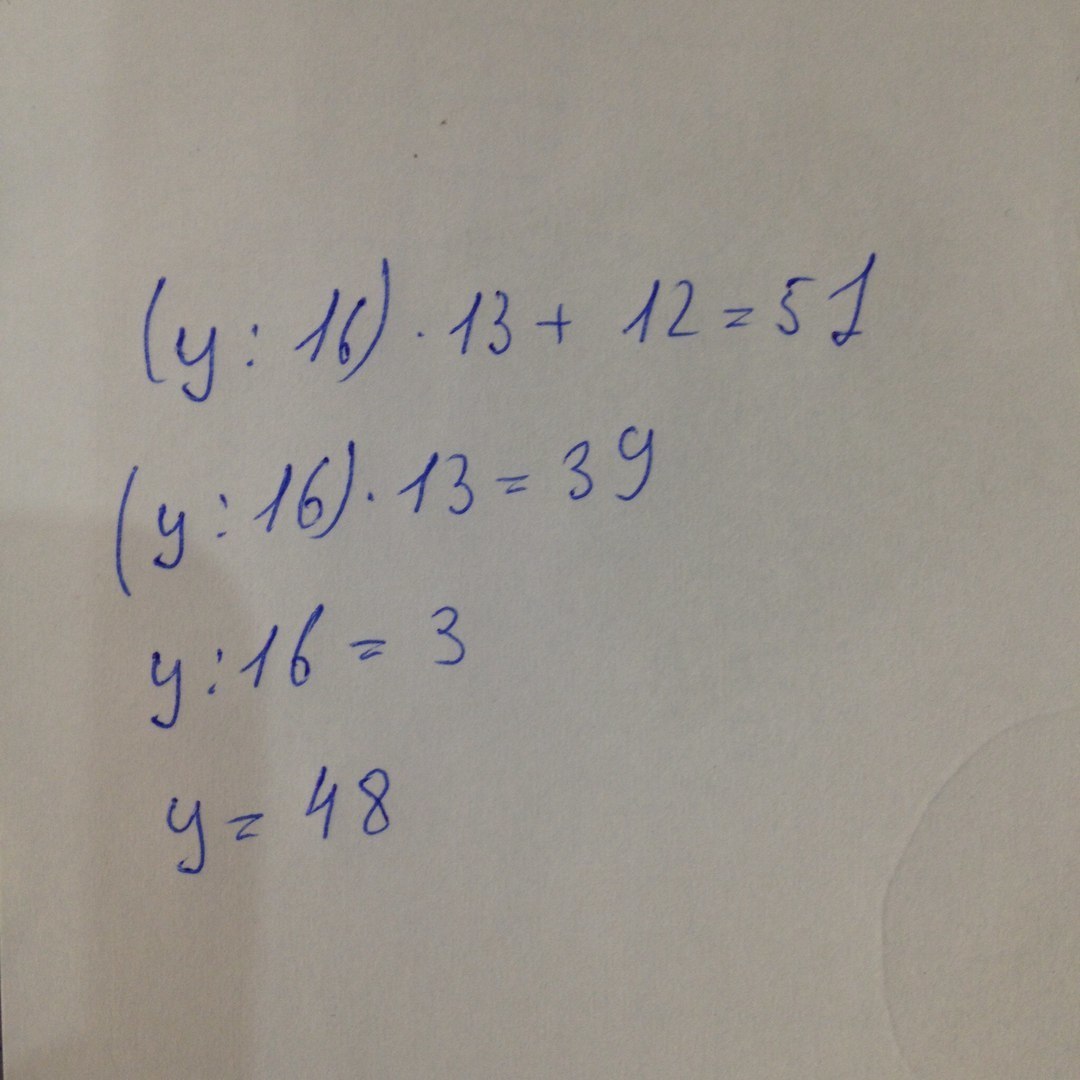 (y : 16) · 13 + 12 = 51
(y : 16) · 13 = 39
y : 16 = 3
y = 48